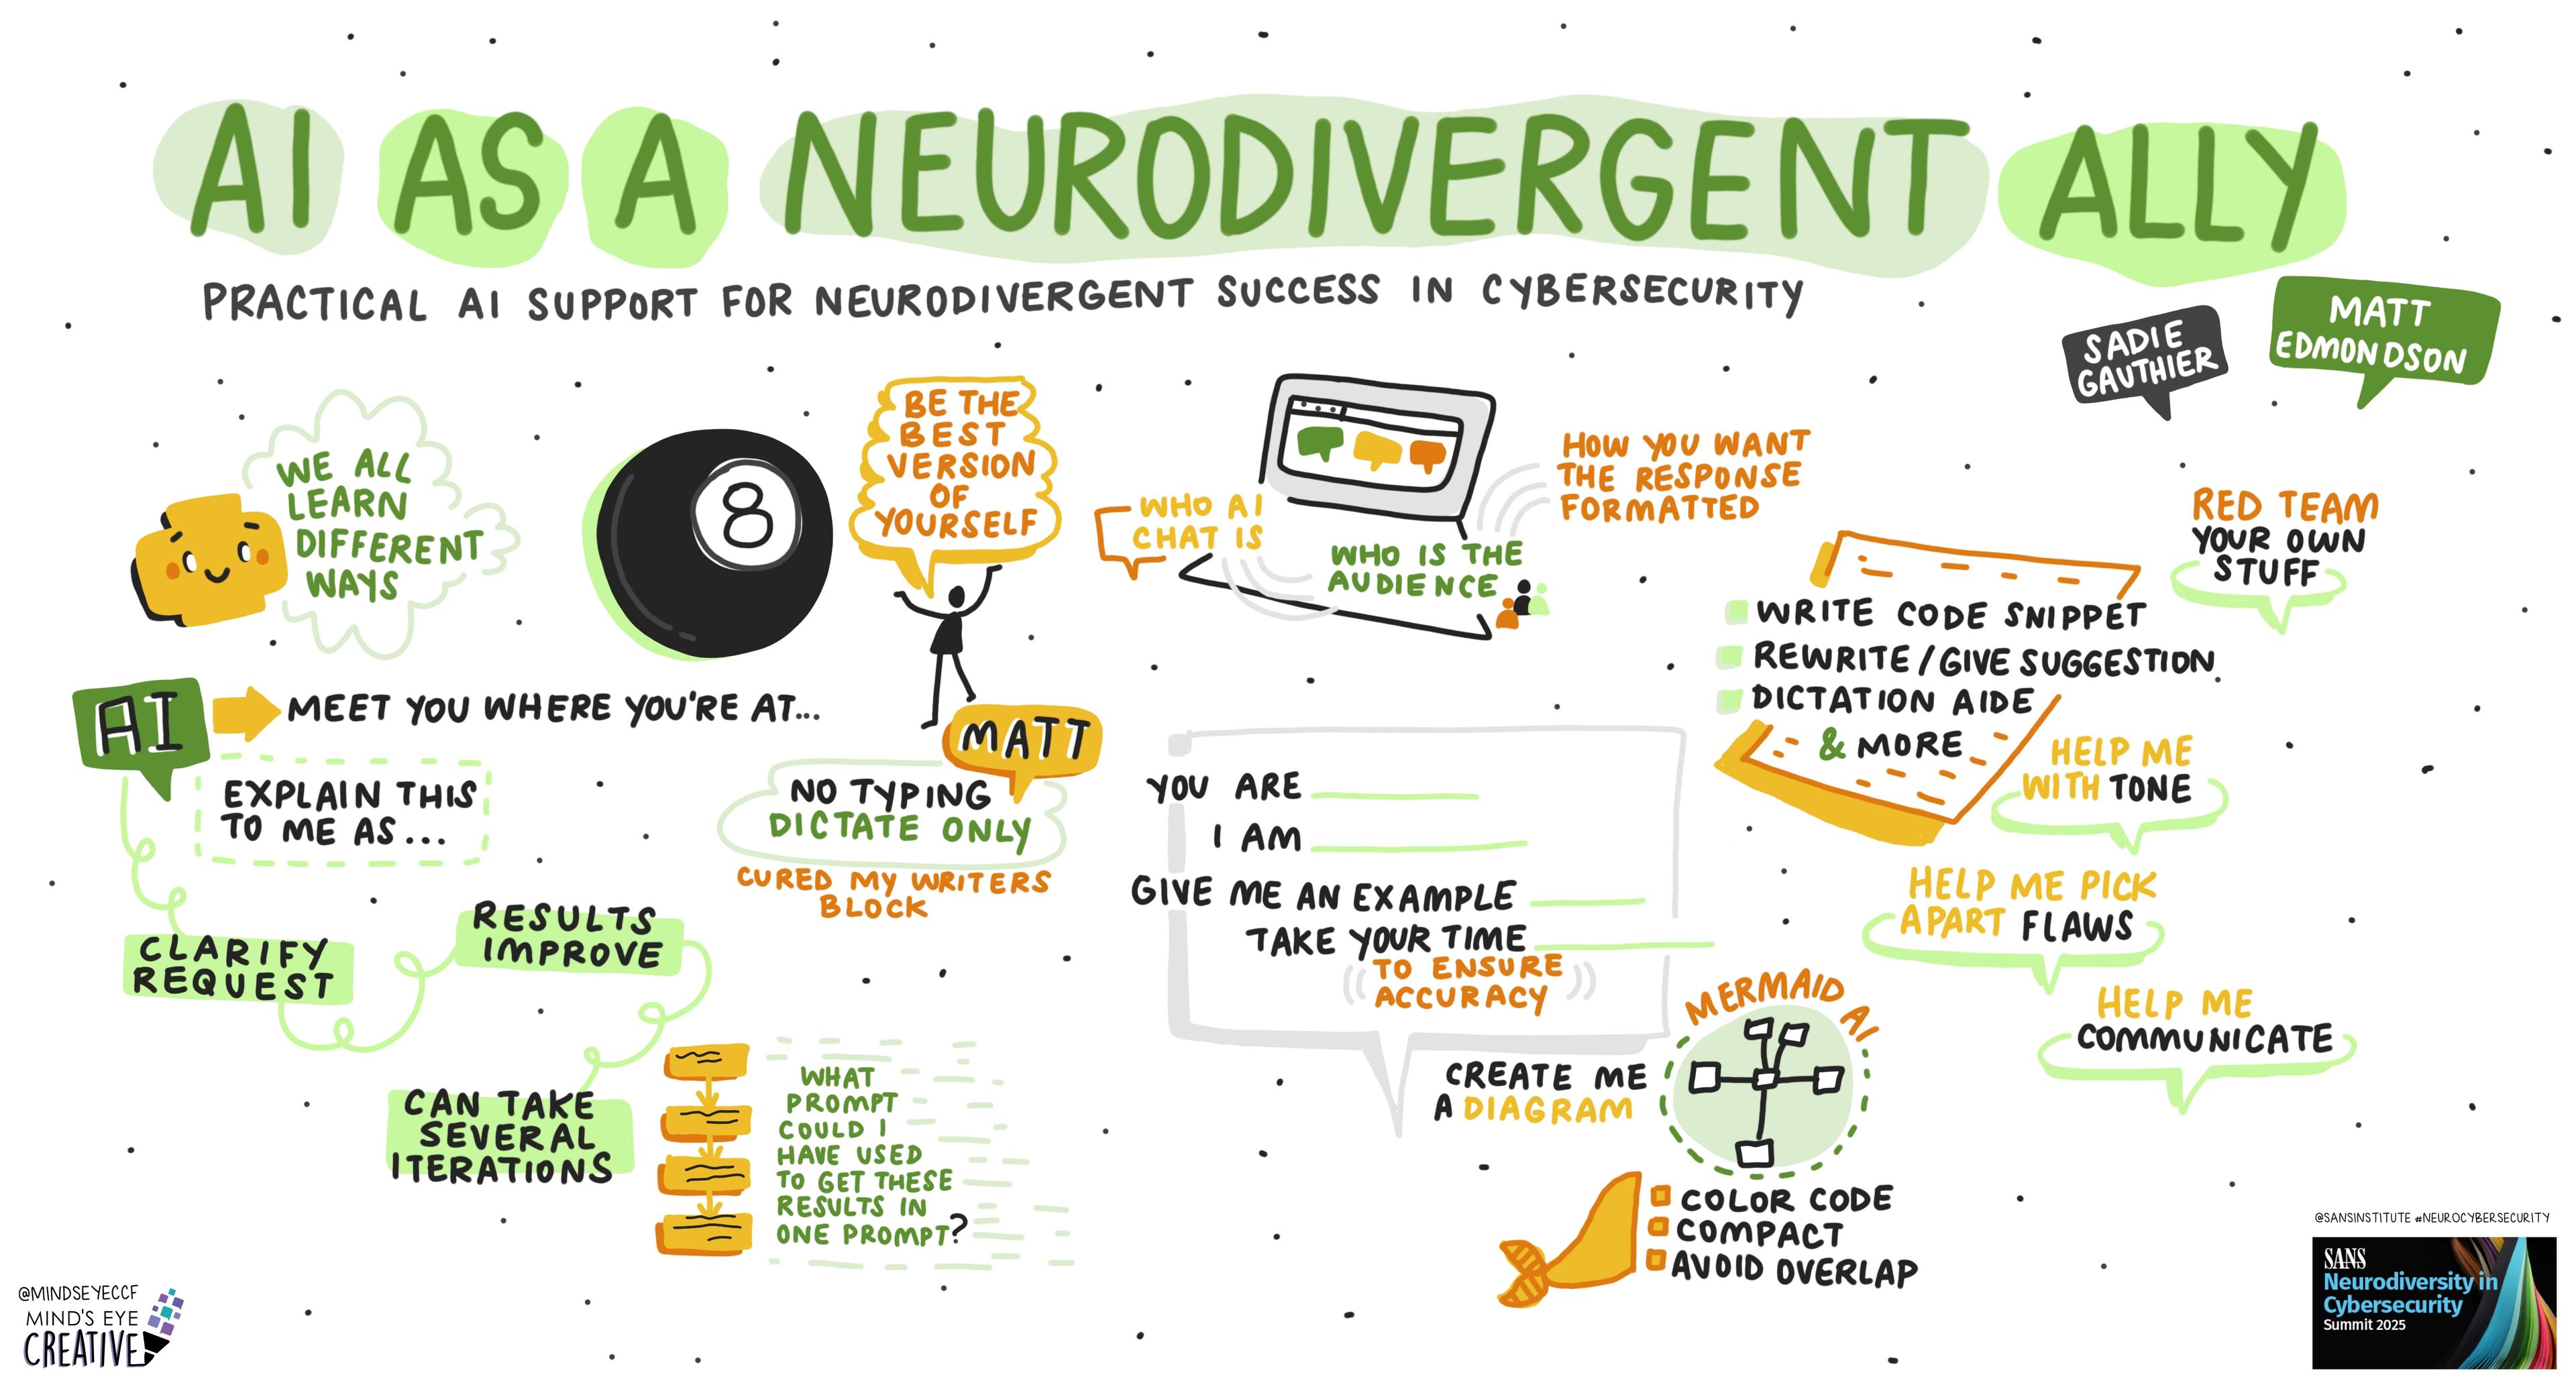 AI AS A NEURODIVERGENT ALLY
PRACTICAL AI SUPPORT FOR NEURODIVERGENT SUCCESS IN CYBERSECURITY
SADIE
GAUTHIER
MATT
EDMONDSON
WE ALL
LEARN
DIFFERENT
WAYS
8
BE THE
BEST
VERSION
OF
YOURSELF
WHO AI
CHAT IS
WHO IS THE
AUDIENCE
HOW YOU WANT
THE RESPONSE
FORMATTED
RED TEAM
YOUR OWN
STUFF
WRITE CODE SNIPPET
REWRITE/GIVE SUGGESTION
DICTATION AIDE
& MORE
AI
MEET YOU WHERE YOU'RE AT...
EXPLAIN THIS
TO ME AS...
MATT
NO TYPING
DICTATE ONLY
CURED MY WRITERS
BLOCK
CLARIFY
REQUEST
RESULTS
IMPROVE
CAN TAKE
SEVERAL
ITERATIONS
WHAT
PROMPT
COULD I
HAVE USED
TO GET THESE
RESULTS IN
ONE PROMPT?
YOU ARE
I AM
GIVE ME AN EXAMPLE
TAKE YOUR TIME
TO ENSURE
ACCURACY
HELP ME
WITH TONE
HELP ME PICK
APART FLAWS
HELP ME
COMMUNICATE
MERMAID AI
CREATE ME
A DIAGRAM
COLOR CODE
COMPACT
AVOID OVERLAP
@MINDSEYECCF
MIND'S EYE
CREATIVE
@SANSINSTITUTE #NEUROCYBERSECURITY
SANS
Neurodiversity in
Cybersecurity
Summit 2025